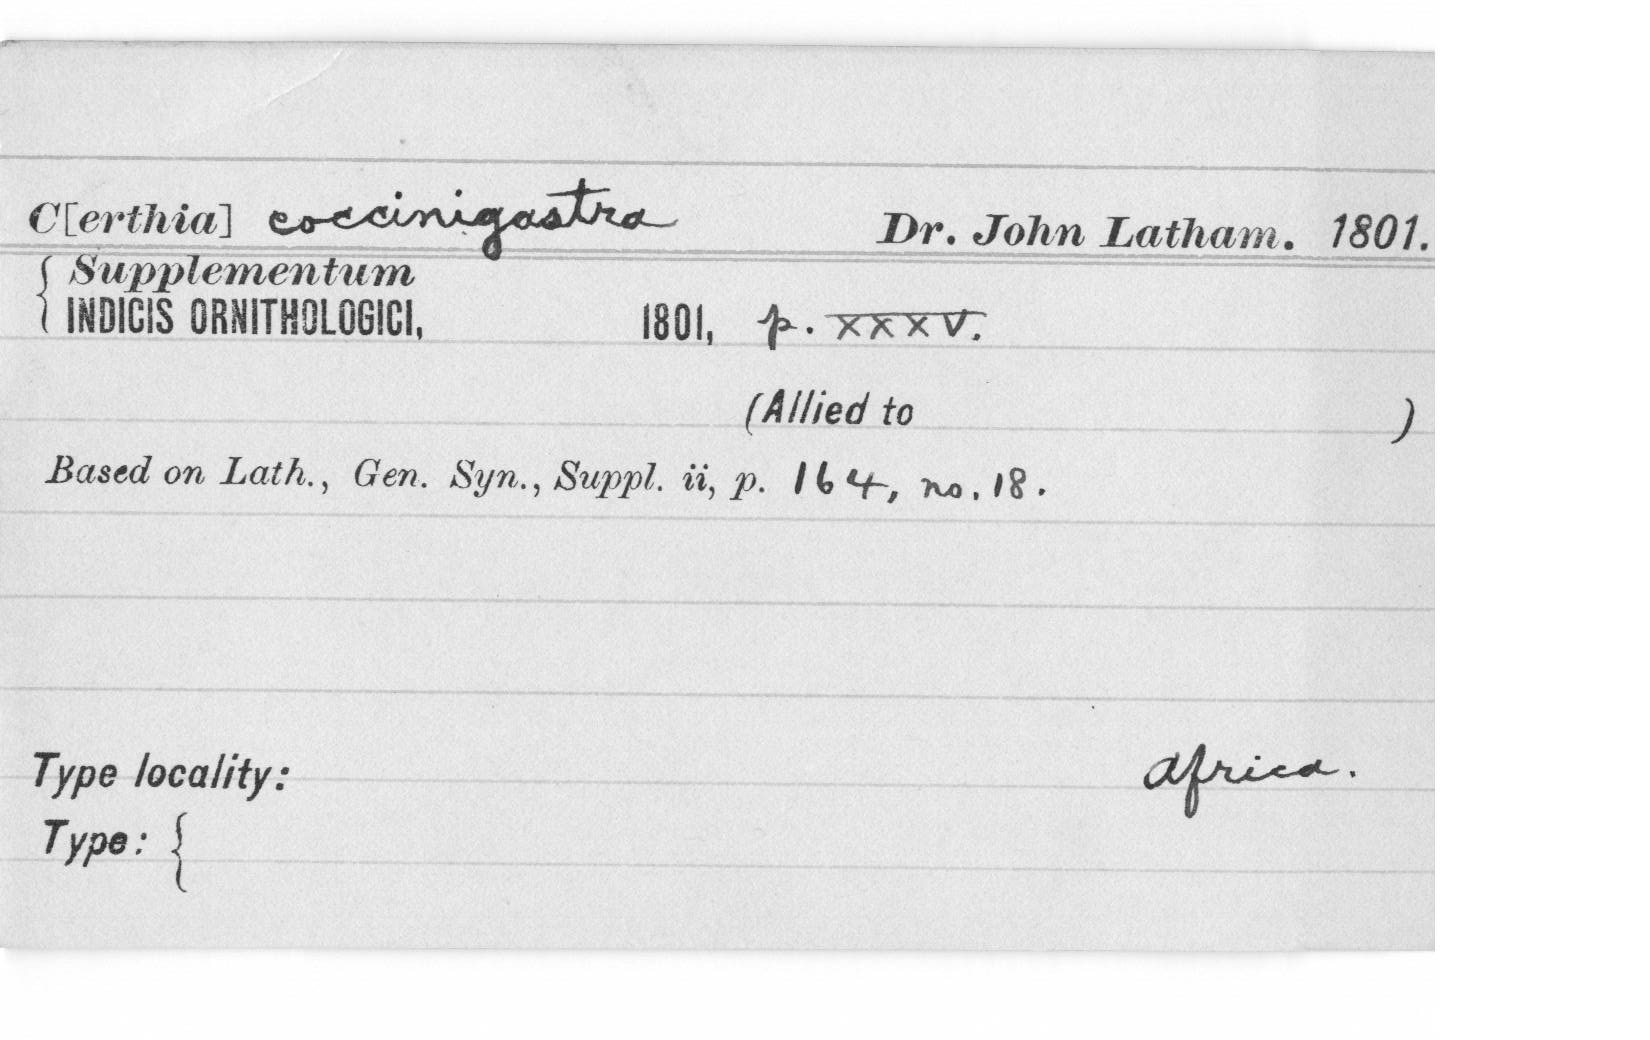 C[erthia] coccinigastra Dr. John Latham. 1801.
Supplementum
INDICIS ORNITHOLOGICI, 1801, p. XXXV.
(Allied to )
Based on Lath., Gen. Syn., Suppl. ii, p. 164, no. 18.
Type locality: Africa.
Type: {